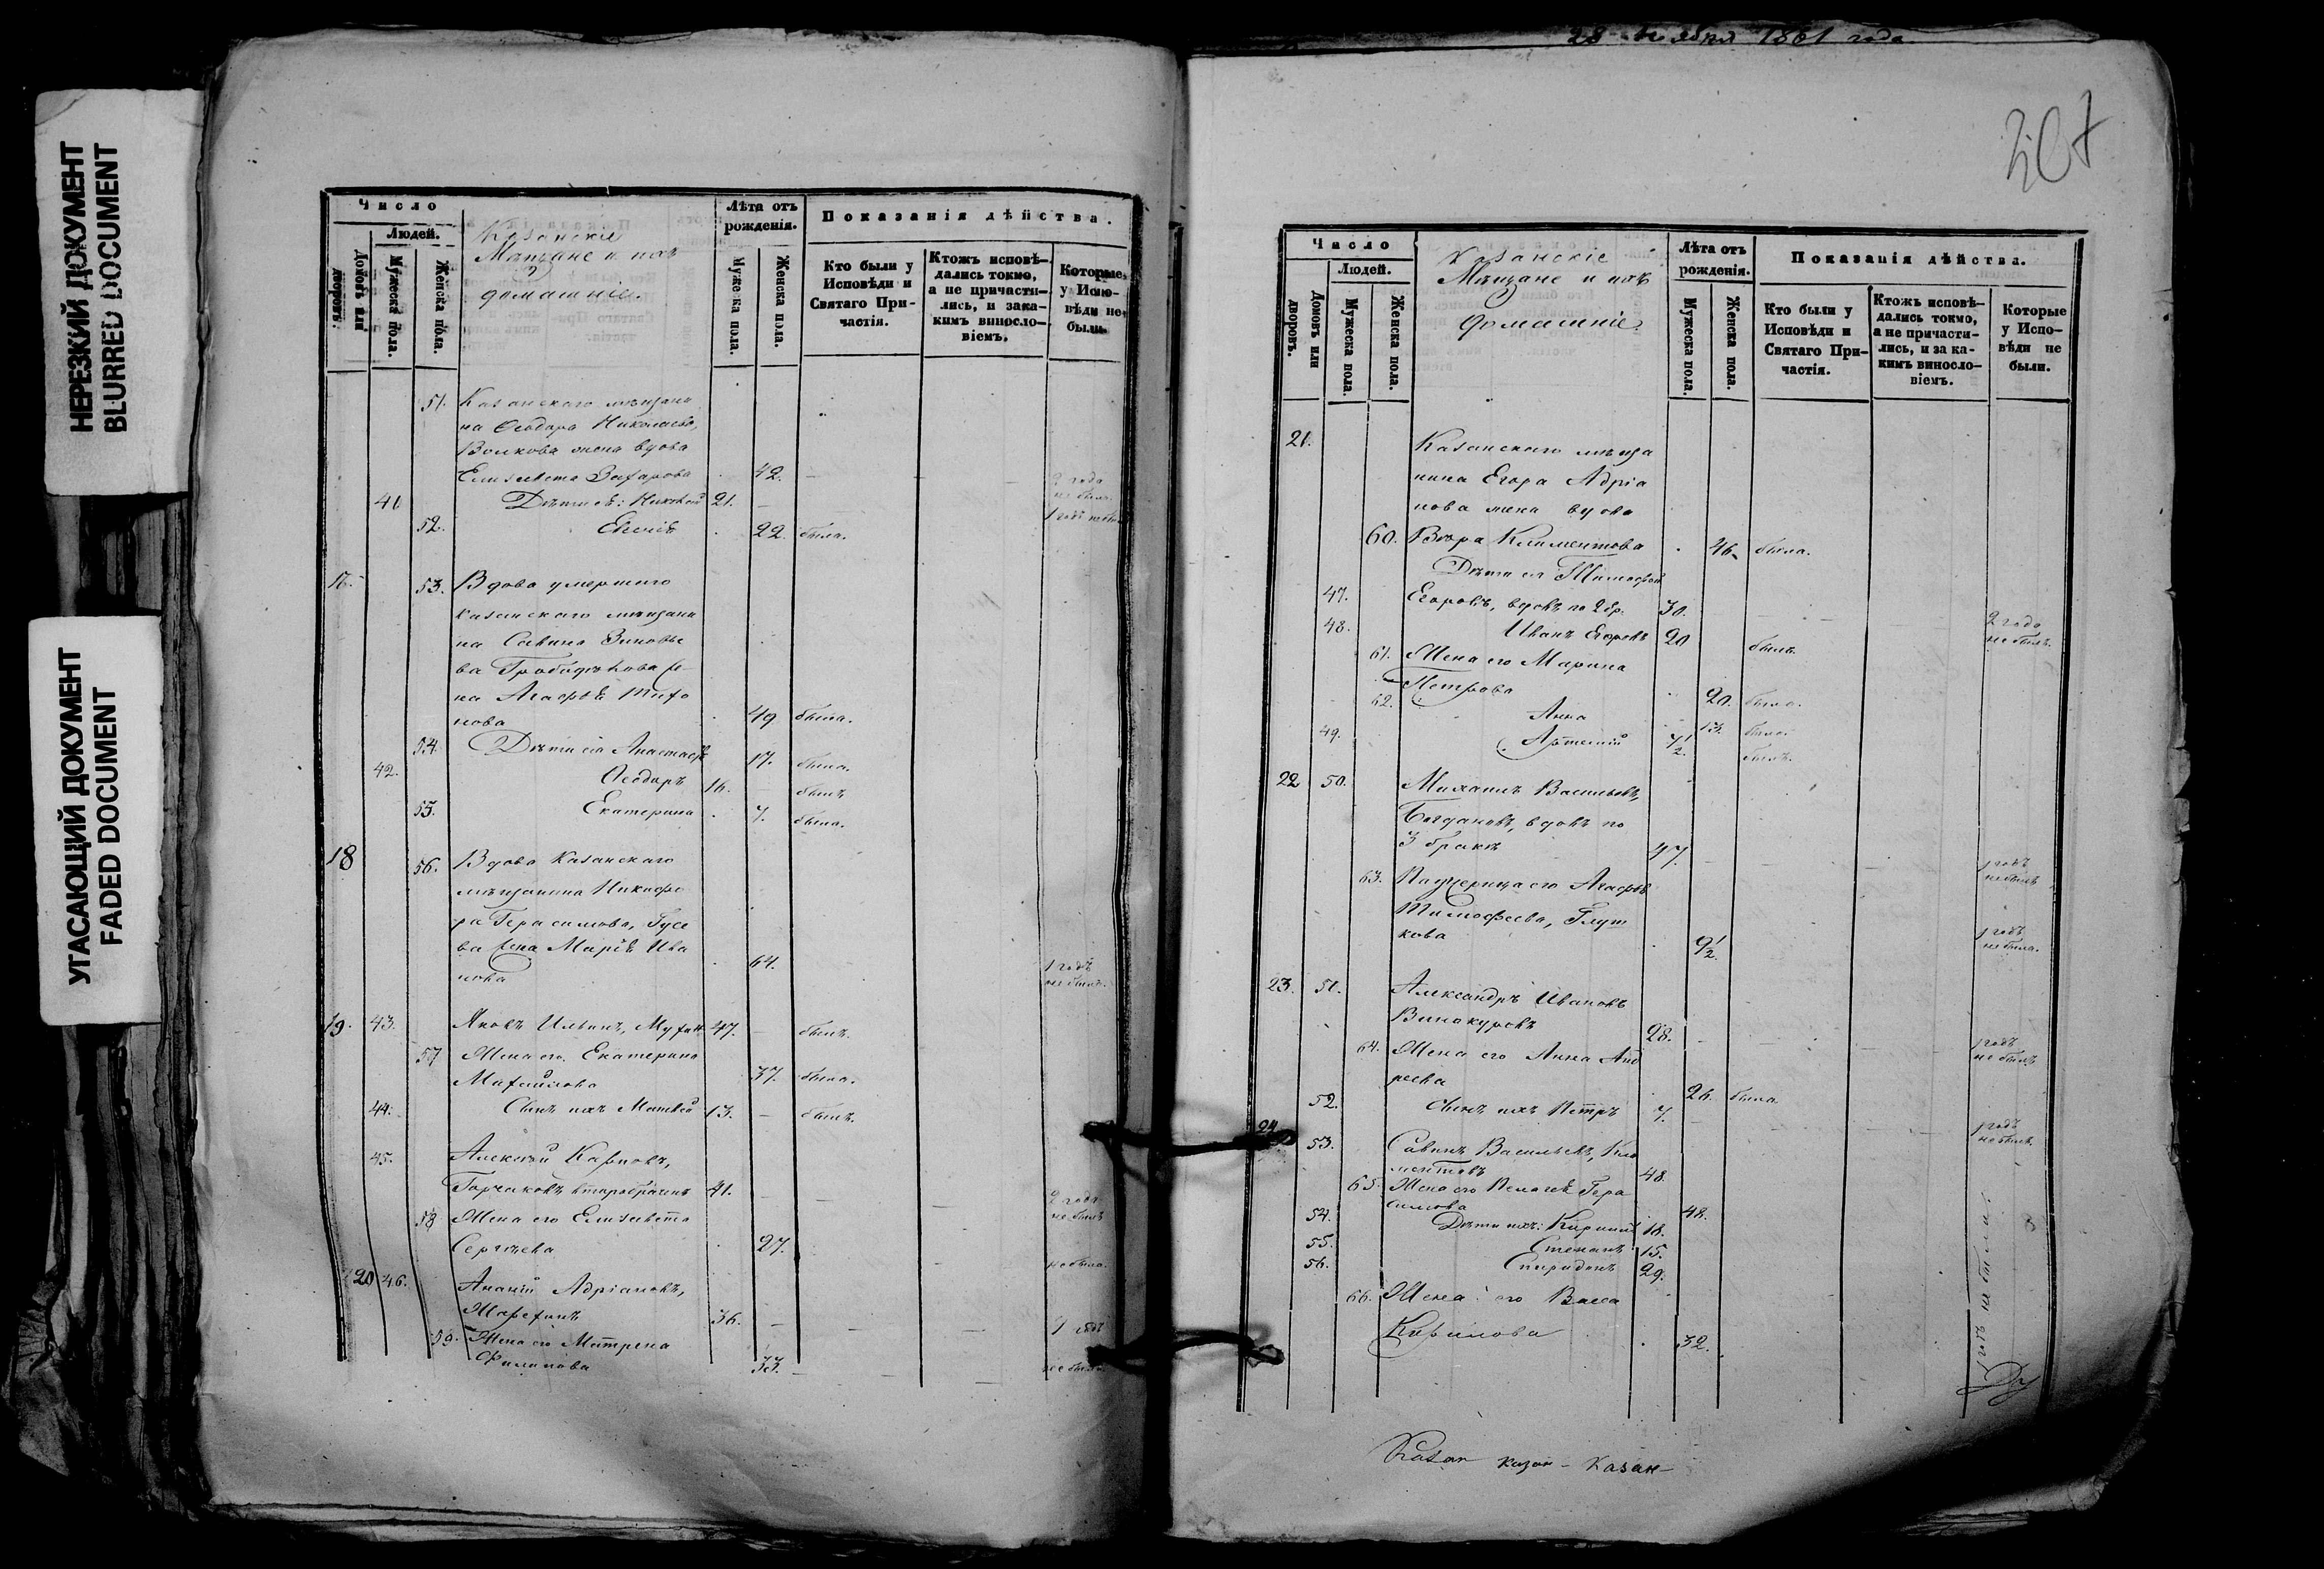 НЕРЕЗКИЙ ДОКУМЕНТ
BLURRED DOCUMENT
УГАСАЮЩИЙ ДОКУМЕНТ
FADED DOCUMENT
Число
Людей.
Домовъ или дворовъ.
Мужеска пола.
Женска пола.
Казанскіе
Мѣщане и ихъ
домашніе.
Лѣта отъ рожденія.
Мужеска пола.
Женска пола.
Показанія дѣйства.
Кто были у Исповѣди и Святаго Причастія.
Ктожъ исповѣдались токмо, а не причастились, и закакимъ винословіемъ.
Которые у Исповѣди не были.
51. Казанскаго мѣщани
на Ѳеодора Николаева,
Волкова жена вдова
Елизавета Захарова 42. 2 года не была.
41 Дѣти ея: Николай 21. 1 годъ не былъ
52. 22. была.
53. Вдова умершаго
казанскаго мѣщани
на Савина Зиновье
ва
на Агафья Тихо
нова 49 была.
54. Дѣти ея Анастасья 17. была.
42. Ѳеодоръ 16. былъ
55. Екатерина 7. была.
18 56. Вдова Казанскаго
мѣщанина Никифо
ра Герасимова, Гусе
ва жена Марія Ива
нова 64. 1 годъ не была.
19. 43. Яковъ Ильинъ, 47. былъ.
57 Жена его Екатерина
Михайлова 37. была.
44. Сынъ ихъ Матвей 13. былъ.
45. Алексѣй Карповъ,
Горчаковъ второбраченъ 41. 2 года не былъ
58 Жена его Елизавета
Сергѣева 27. не была.
20 46. Ананій Адріановъ,
36. 1 годъ
59. Жена его Матрена
Филипова 33. не были
28 ноября 1861 года.
307
Число
Людей.
Домовъ или дворовъ.
Мужеска пола.
Женска пола.
Казанскіе
Мѣщане и ихъ
домашніе.
Лѣта отъ рожденія.
Мужеска пола.
Женска пола.
Показанія дѣйства.
Кто были у Исповѣди и Святаго Причастія.
Ктожъ исповѣдались токмо, а не причастились, и за какимъ винословіемъ.
Которые у Исповѣди не были.
21. Казанскаго мѣща
нина Егора Адріа
нова жена вдова
60. Вѣра Климентова 46. была.
Дѣти ея Тимофей
47. Егоровъ, вдовъ по 2 бр. 30. 2 года не былъ.
48. Иванъ Егоровъ 20 былъ.
61. Жена его Марина
Петрова 20. была.
62. Анна 13. была.
49. Артемій 7 1/2. былъ.
22 50. Михаилъ Васильевъ,
Богдановъ, вдовъ по
3 бракѣ 47. 1 годъ не былъ
63. Падчерица его Агафья
Тимофеева, Глуш
кова 9 1/2. 1 годъ не была.
23. 51. Александръ Ивановъ
Винокуровъ 28. 1 годъ не былъ
64. Жена его Анна Анд
реева 26. была
52. Сынъ ихъ Петръ 7. 1 годъ не былъ.
24 53. Савинъ Васильевъ, Кли
ментовъ 48.
65. Жена его Пелагея Гера
симова 48.
54. Дѣти ихъ: Кирилъ 18.
55. Степанъ 15.
56. Спиридонъ 29.
66. Жена его Васса
Кирилова 32.
1 годъ не были.
Казан казан - Казан-